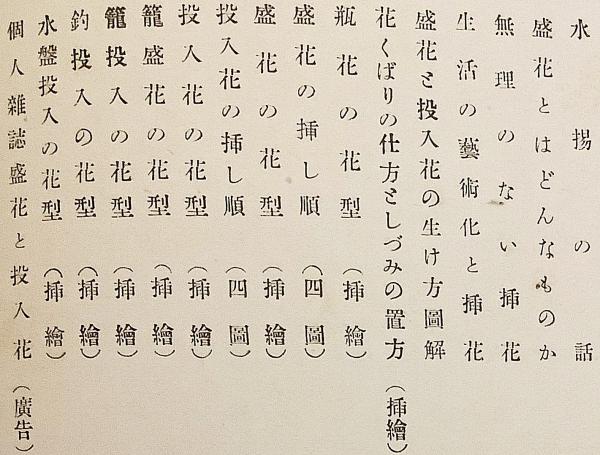 水揚の話
盛花とはどんなものか
無理のない挿花
生活の藝術化と挿花
盛花と投入花の生け方圖解
花くばりの仕方としづみの置方（挿繪）
瓶花の花型（挿繪）
盛花の挿し順（四圖）
盛花の花型（挿繪）
投入花の挿し順（四圖）
投入花の花型（挿繪）
籠盛花の花型（挿繪）
籠投入の花型（挿繪）
釣投入の花型（挿繪）
水盤投入の花型（挿繪）
個人雜誌盛花と投入花（廣告）